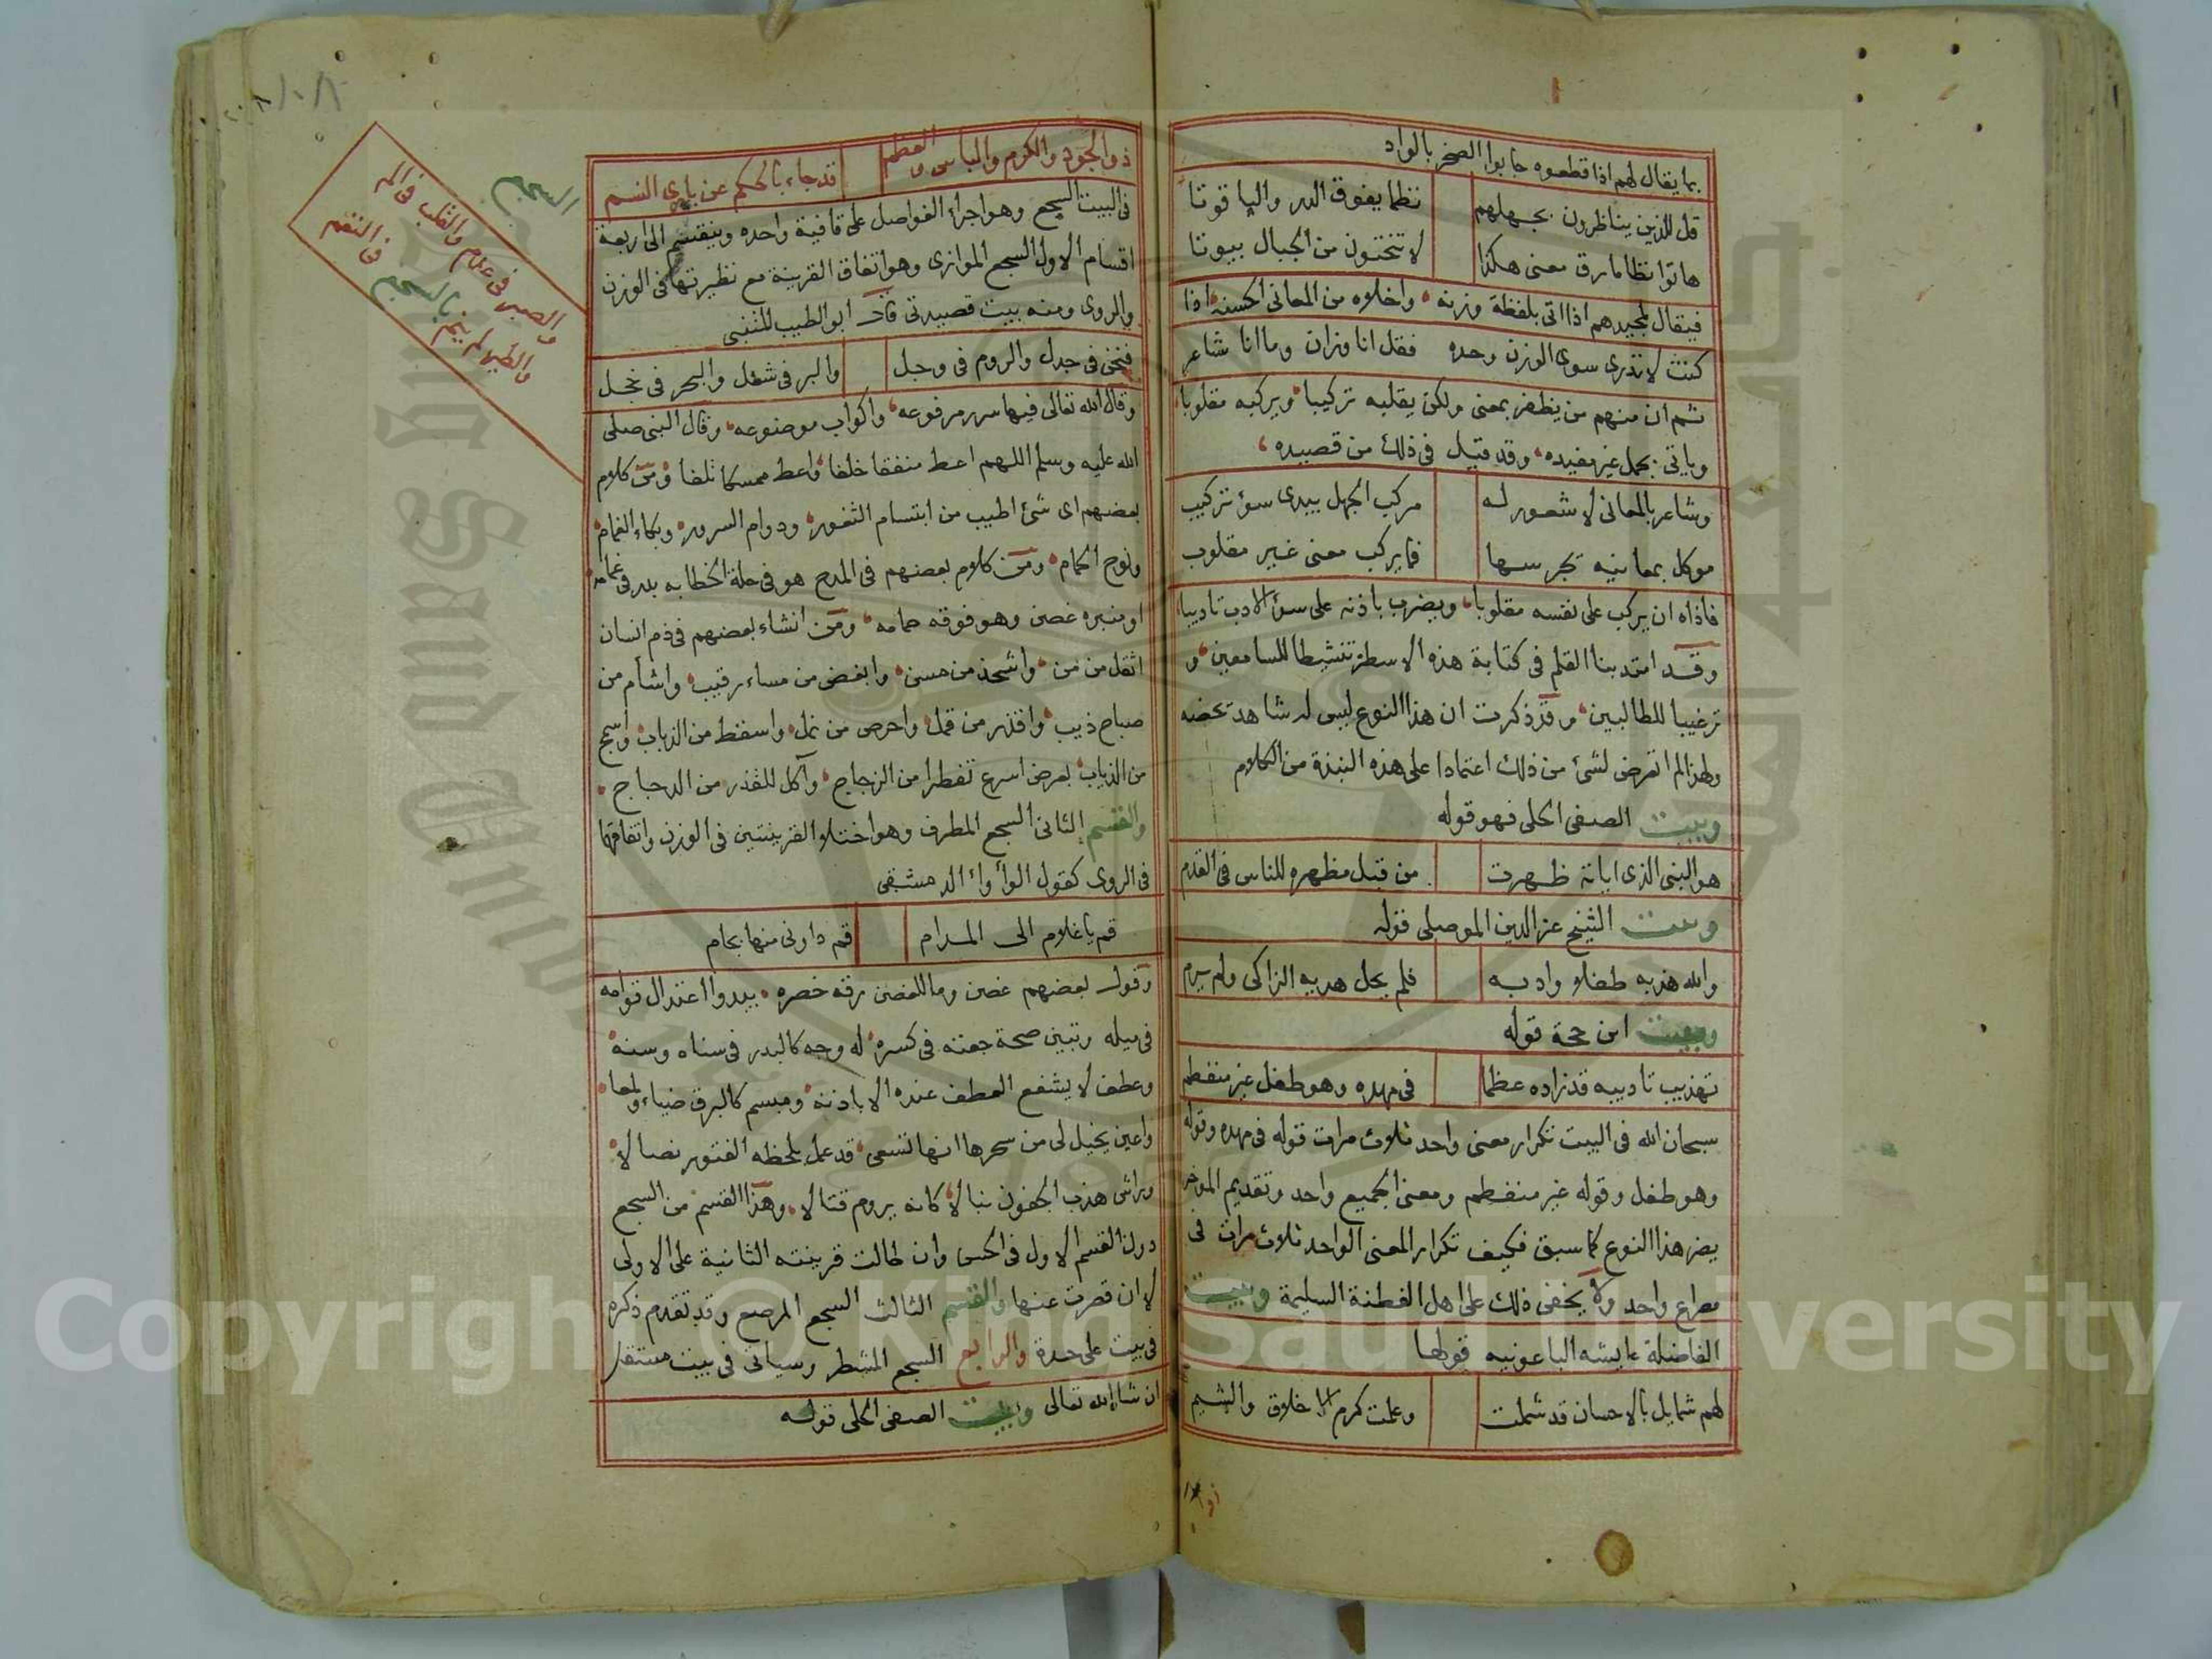 بما يقال لهم اذا قطعوه جابوا الصخر بالواد
قل للذين يناظرون بجهلهم نظما يفوق الدر والياقوتا
هاتوا نظاما رق معنى هكذا لا تنحتون من الجبال بيوتا
فيقال لمجيدهم اذا اتى بلفظة وزنه واخلاه من المعانى الحسنه اذا
كنت لا تدرى سوى الوزن وحده فقل انا وزان وما انا شاعر
ثم ان منهم من يظفر بمعنى ولكن يقلبه تركيبا ويركبه مقلوبا
وياتى بجمل غير مفيده وقد قيل فى ذلك من قصيده
وشاعر بالمعانى لا شعور له مركب الجهل يبدى سوء تركيب
موكل بمعانيه يجرسها فما يركب معنى غير مقلوب
فاذاه ان يركب على نفسه مقلوبا ويضرب باذنه على سوء الادب تاديبا
وقد امتد بنا القلم فى كتابة هذه الاسطر تنشيطا للسامعين و
ترغيبا للطالبين وقد ذكرت ان هذا النوع ليس له شاهد يخصه
ولهذا لم اتعرض لشئ من ذلك اعتمادا على هذه النبذة من الكلام
وبيت الصفى الحلى فهو قوله
هو النبى الذى اياته ظهرت من قبل مظهره للناس فى القدم
وبيت الشيخ عز الدين الموصلى قوله
والله هذبه طفلا وادبه فلم يحل هديه الزاكى ولم يرم
وبيت ابن حجة قوله
تهذيب تاديبه قد زاده عظما فى مهده وهو طفل غير منفطم
سبحان الله فى البيت تكرار معنى واحد ثلاث مرات قوله فى مهده وقوله
وهو طفل وقوله غير منفطم ومعنى الجميع واحد وتقديم الموخر
يضر هذا النوع كما سبق فكيف تكرار المعنى الواحد ثلاث مرات فى
مصراع واحد ولا يخفى ذلك على اهل الفطنة السليمة وبيت
الفاضلة عايشه الباعونيه قولها
لهم شمايل بالاحسان قد شملت وعلمت كرم الاخلاق والشيم
ذو الجود والكرم والباس والعظم قد جاء بالحكم عن بارى النسم
فى البيت السجع وهو اجراء الفواصل على قافية واحده وينقسم الى اربعة
اقسام الاول السجع الموازى وهو اتفاق القرينة مع نظيرتها فى الوزن
والروى ومنه بيت قصيدتى قال ابو الطيب المتنبى
فنحن فى جدل والروم فى وجل والبر فى شغل والبحر فى خجل
وقال الله تعالى فيها سرر مرفوعه واكواب موضوعه وقال النبى صلى
الله عليه وسلم اللهم اعط منفقا خلفا واعط ممسكا تلفا ومن كلام
بعضهم اى شئ اطيب من ابتسام الثغور ودوام السرور وبكاء الغمام
ونوح الحمام ومن كلام بعضهم فى المدح هو فى حلة الخطابه بدر فى غمامه
او منبره غصن وهو فوقه حمامه ومن انشاء بعضهم فى ذم انسان
اثقل من من واشحذ من مسن وابغض من مساء رقيب واشأم من
صباح ذيب واقذر من قمل واحرص من نمل واسقط من الذباب واسمج
من الذياب بعرض اسرع تفطرا من الزجاج وآكل للقذر من الدجاج
والقسم الثانى السجع المطرف وهو اختلاف القرينتين فى الوزن واتفاقهما
فى الروى كقول الوأواء الدمشقى
قم يا غلام الى المدام قم داونى منها بجام
وقول بعضهم غصن وما للغصن رقه خصره يبدوا اعتدال قوامه
فى ميله وتبين صحة جفنه فى كسره له وجه كالبدر فى سناه وسنه
وعطف لا يشفع العطف عنده الا باذنه ومبسم كالبرق ضياء ولمعا
واعين يخيل لى من سحرها انها تسعى قد عمل بلحظه الفتور نصالا
وراش هذب الجفون نبالا كانه يروم قتالا وهذا القسم من السجع
دون القسم الاول فى الحسن وان طالت قرينته الثانية على الاولى
لا ان قصرت عنها والقسم الثالث السجع المرصع وقد تقدم ذكره
فى بيت على حدة والرابع السجع المشطر وسياتى فى بيت مستقل
ان شاء الله تعالى وبيت الصفى الحلى قوله
السجع
والصبر فى عدم والقلب فى الم
والطير لم ينم بالسجع فى النغم
Copyright © King Saud University